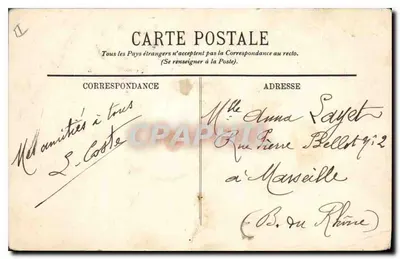 CARTE POSTALE
Tous les Pays étrangers n'acceptent pas la Correspondance au recto.
(Se renseigner à la Poste).
CORRESPONDANCE
ADRESSE
Mes amitiés à tous
L. Coste
Mlle Anna Layet
Rue Pierre Bellot N: 2
à Marseille
(B. du Rhône)